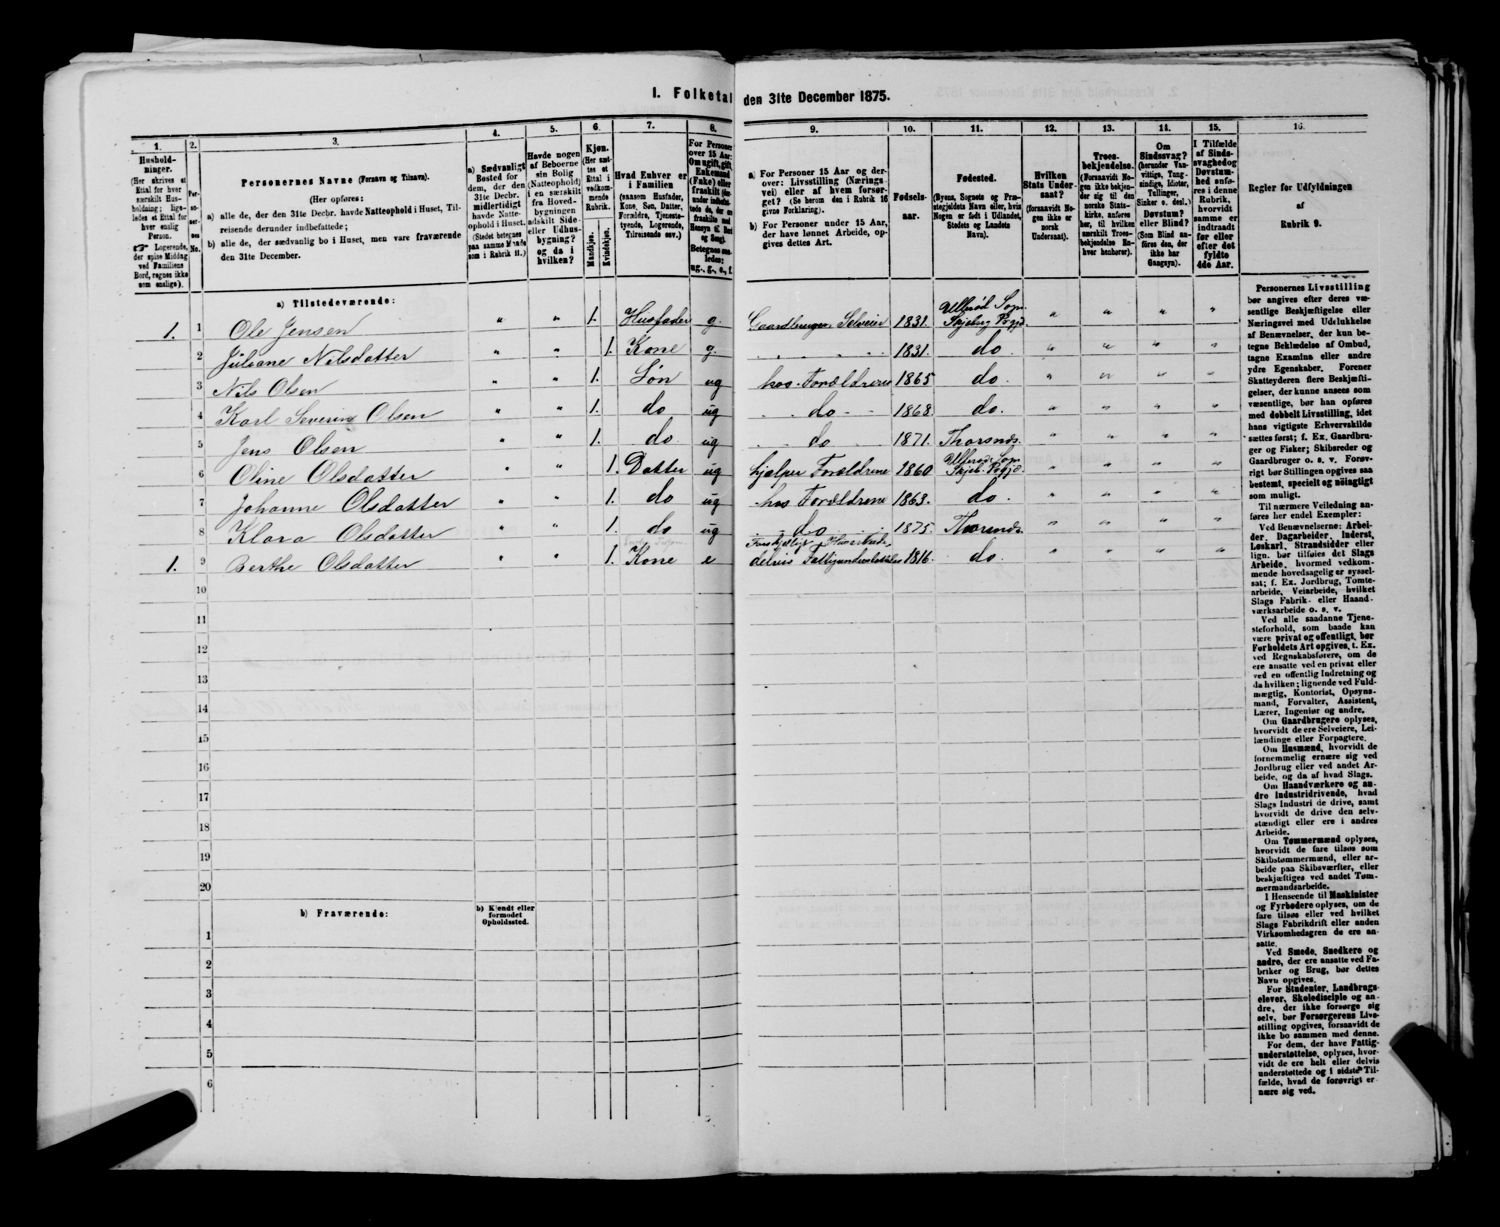 I. Folketal den 31te December 1875.
1.
Husholdninger.
2.
3.
Personernes Navne (Fornavn og Tilnavn).
(Her opføres:
a) alle de, der den 31te Decbr. havde Natteophold i Huset, Tilreisende derunder indbefattede;
b) alle de, der sædvanlig bo i Huset, men vare fraværende den 31te December.
4.
a) Sædvanligt Bosted for dem, der den 31te Decbr. midlertidigt havde Natteophold i Huset.
5.
Havde nogen af Beboerne sin Bolig (Natteophold) i en særskilt fra Hovedbygningen adskilt Side- eller Udhusbygning? og da i hvilken?
6.
Kjøn.
Mandkjøn.
Kvindekjøn.
7.
Hvad Enhver er i Familien
(saasom Husfader, Kone, Søn, Datter, Forældre, Tjenestetyende, Logerende, Tilreisende osv.)
8.
For Personer over 15 Aar: Om ugift, gift, Enkemand (Enke) eller fraskilt
9.
a) For Personer 15 Aar og derover: Livsstilling (Næringsvei) eller af hvem forsørget? (Se herom den i Rubrik 16 givne Forklaring).
b) For Personer under 15 Aar, der have lønnet Arbeide, opgives dettes Art.
10.
Fødselsaar.
11.
Fødested.
(Byens, Sognets og Præstegjeldets Navn eller, hvis Nogen er født i Udlandet, Stedets og Landets Navn).
12.
Hvilken Stats Undersaat?
(forsaavidt Nogen ikke er norsk Undersaat).
13.
Troesbekjendelse.
(Forsaavidt Nogen ikke bekjender sig til den norske Statskirke, anføres her, til hvilken særskilt Troesbekjendelse Enhver henhører).
14.
Om Sindssvag? (herunder Vanvittige, Tungsindige, Idioter, Tullinger, Sinker o. desl.). Døvstum? eller Blind? (Som Blind anføres den, der ikke har Gangsyn).
15.
I Tilfælde af Sindssvaghed og Døvstumhed anføres i denne Rubrik, hvorvidt samme er indtraadt før eller efter det fyldte 4de Aar.
16.
Regler for Udfyldningen
af
Rubrik 9.
a) Tilstedeværende:
1. 1 Ole Jensen " " 1. Husfader g. Gaardbruger Selveier 1831. Ullerød Sogn Skjeberg Prgjd. " " " "
2 Juliane Nilsdatter " " 1. Kone g. 1831. do. " " " "
3 Nils Olsen " " 1. Søn ug hos Forældrene 1865 do. " " " "
4 Karl Severin Olsen " " 1. do ug do 1868. do. " " " "
5 Jens Olsen " " 1. do ug do 1871. Thorsnæs. " " " "
6 Oline Olsdatter " " 1. Datter ug hjælper Forældrene 1860 Ullerød Sogn Skjeb. Prgjd. " " " "
7 Johanne Olsdatter " " 1. do ug hos Forældrene 1863. do. " " " "
8 Klara Olsdatter " " 1. do ug do 1875. Thorsnæs " " " "
1. 9 Berthe Olsdatter " " 1. Kone e delvis Fattigunderstøttelse 1816. do. " " " "
10
11
12
13
14
15
16
17
18
19
20
b) Fraværende:
b) Kjendt eller formodet Opholdssted.
1
2
3
4
5
6
Personernes Livsstilling
bør angives efter deres væsentlige Beskjæftigelse eller
Næringsvei med Udelukkelse
af Benævnelser, der kun betegne Beklædelse af Ombud,
tagne Examina eller andre
ydre Egenskaber. Forener
Skatteyderen flere Beskjæftigelser, der kunne ansees som
væsentlige, bør han opføres
med dobbelt Livsstilling, idet
hans vigtigste Erhvervskilde
sættes først; f. Ex. Gaardbruger og Fisker; Skibsreder og
Gaardbruger o. s. v. Forøvrigt bør Stillingen opgives saa
bestemt, specielt og nøiagtigt
som muligt.
Til nærmere Veiledning anføres her endel Exempler:
Ved Benævnelserne: Arbeider, Dagarbeider, Inderst,
Løskarl, Strandsidder eller
lign. bør tilføies det Slags
Arbeide, hvormed vedkommende hovedsagelig er sysselsat; f. Ex. Jordbrug, Tomtearbeide, Veiarbeide, hvilket
Slags Fabrik- eller Haandværksarbeide o. s. v.
Ved alle saadanne Tjenesteforhold, som baade kan
være privat og offentligt, bør
Forholdets Art opgives, t. Ex.
ved Regnskabsførere, om de
ere ansatte ved en privat eller
ved en offentlig Indretning og
da hvilken; lignende ved Fuldmægtig, Kontorist, Opsynsmand, Forvalter, Assistent,
Lærer, Ingeniør og andre.
Om Gaardbrugere oplyses,
hvorvidt de ere Selveiere, Leilændinge eller Forpagtere.
Om Husmænd, hvorvidt de
fornemmelig ernære sig ved
Jordbrug eller ved andet Arbeide, og da af hvad Slags.
Om Haandværkere og andre Industridrivende, hvad
Slags Industri de drive, samt
hvorvidt de drive den selvstændigt eller ere i andres
Arbeide.
Om Tømmermænd oplyses,
hvorvidt de fare tilsøs som
Skibstømmermænd, eller arbeide paa Skibsværfter, eller
beskjæftiges ved andet Tømmermandsarbeide.
I Henseende til Maskinister
og Fyrbødere oplyses, om de
fare tilsøs eller ved hvilket
Slags Fabrikdrift eller anden
Virksomhedsgren de ere ansatte.
Ved Smede, Snedkere og
andre, der ere ansatte ved Fabriker og Brug, bør dettes
Navn opgives.
For Studenter, Landbrugselever, Skoledisciple og andre, der ikke forsørge sig
selv, bør Forsørgerens Livsstilling opgives, forsaavidt de
ikke bo sammen med denne.
For dem, der have Fattigunderstøttelse, oplyses, hvorvidt de ere helt eller delvis
understøttede og i sidste Tilfælde, hvad de forøvrigt ernære sig ved.